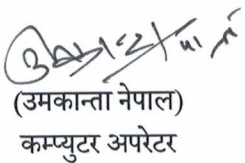 (उमकान्ता नेपाल)
कम्प्युटर अपरेटर